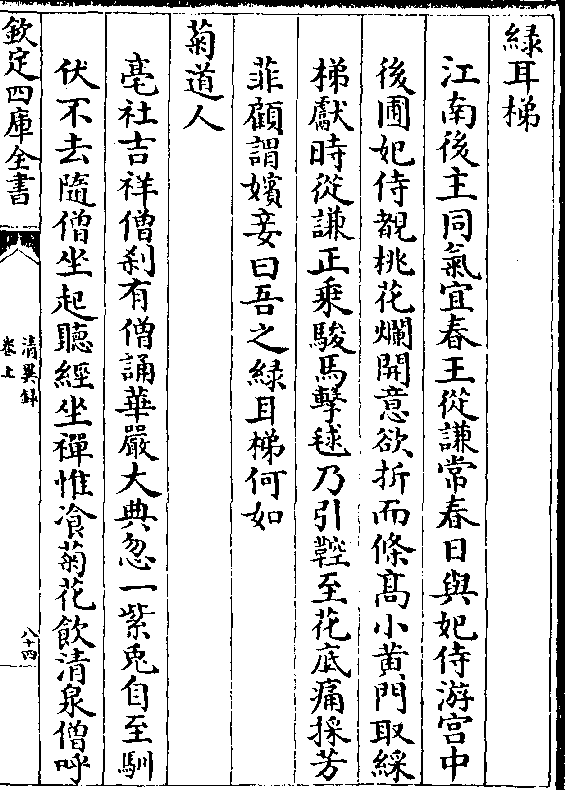 緑耳梯
江南後主同氣宜春王從謙常春日與妃侍游宫中
後圃妃侍覩桃花爛開意欲折而條髙小黄門取綵
梯獻時從謙正乗駿馬擊毬乃引鞚至花底痛採芳
菲顧謂嬪妾曰吾之緑耳梯何如
菊道人
亳社吉祥僧刹有僧誦華嚴大典忽一紫兎自至馴
伏不去隨僧坐起聽經坐禪惟飡菊花飲清泉僧呼
欽定四庫全書
清異録
卷上
八十四